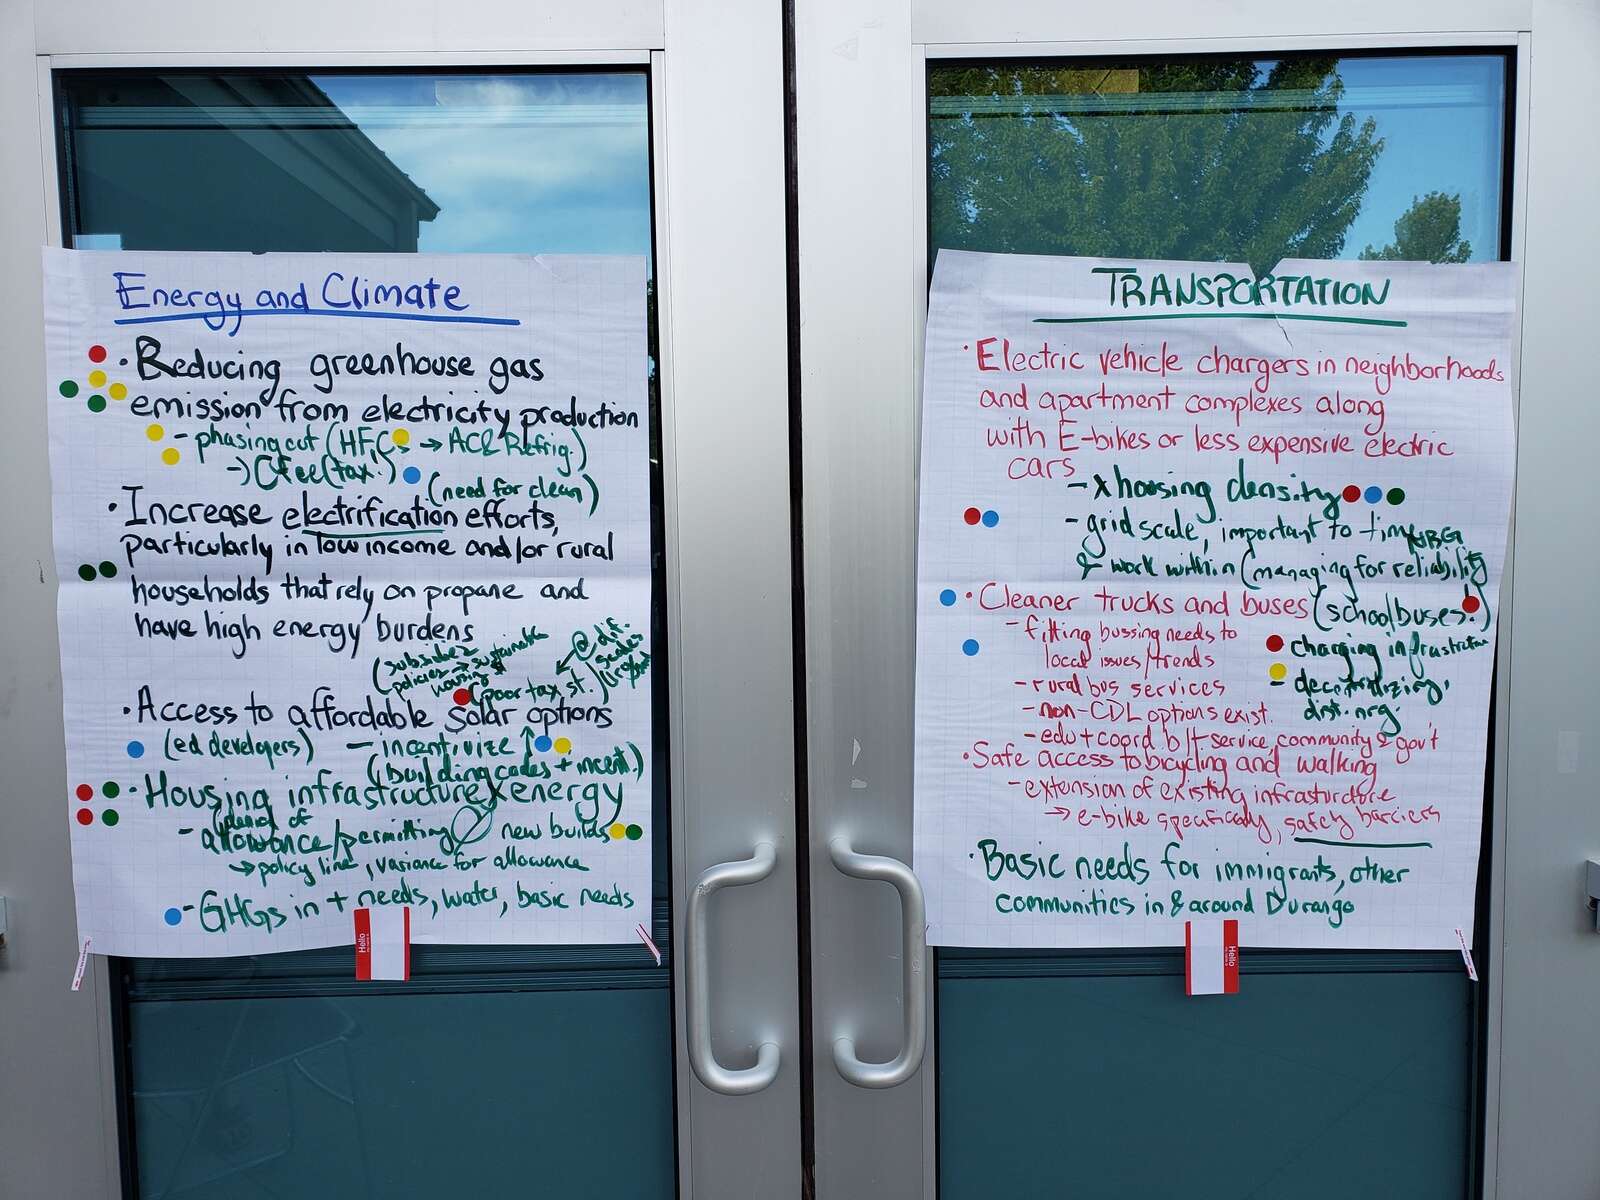 Energy and Climate
· Reducing greenhouse gas
emission from electricity production
- phasing out (HFCs → AC & Refrig.)
→ Cfee (tax.)
(need for clean)
· Increase electrification efforts,
particularly in low income and/or rural
households that rely on propane and
have high energy burdens
(subsidies
policies → sustainable
housing
@ dif.
scales
(poor tax, st.)
· Access to affordable solar options
(ed developers) - incentivize ↑
(building codes + incent.)
· Housing infrastructure x energy
(denial of
- allowance/permitting new builds
→ policy line, variance for allowance
- GHGs in + needs, water, basic needs
Hello
TRANSPORTATION
· Electric vehicle chargers in neighborhoods
and apartment complexes along
with E-bikes or less expensive electric
cars
- x housing density
- grid scale, important to time
& work within (managing for reliability
· Cleaner trucks and buses (school buses!)
- fitting bussing needs to
local issues/trends
- rural bus services
- non-CDL options exist.
- edu + coord b/t service, community & gov't
- charging infrastructure
- decentralizing,
dist. nrg.
· Safe access to bicycling and walking
- extension of existing infrasturdore
→ e-bike specifically, safety barriers
· Basic needs for immigrants, other
communities in & around Durango
Hello